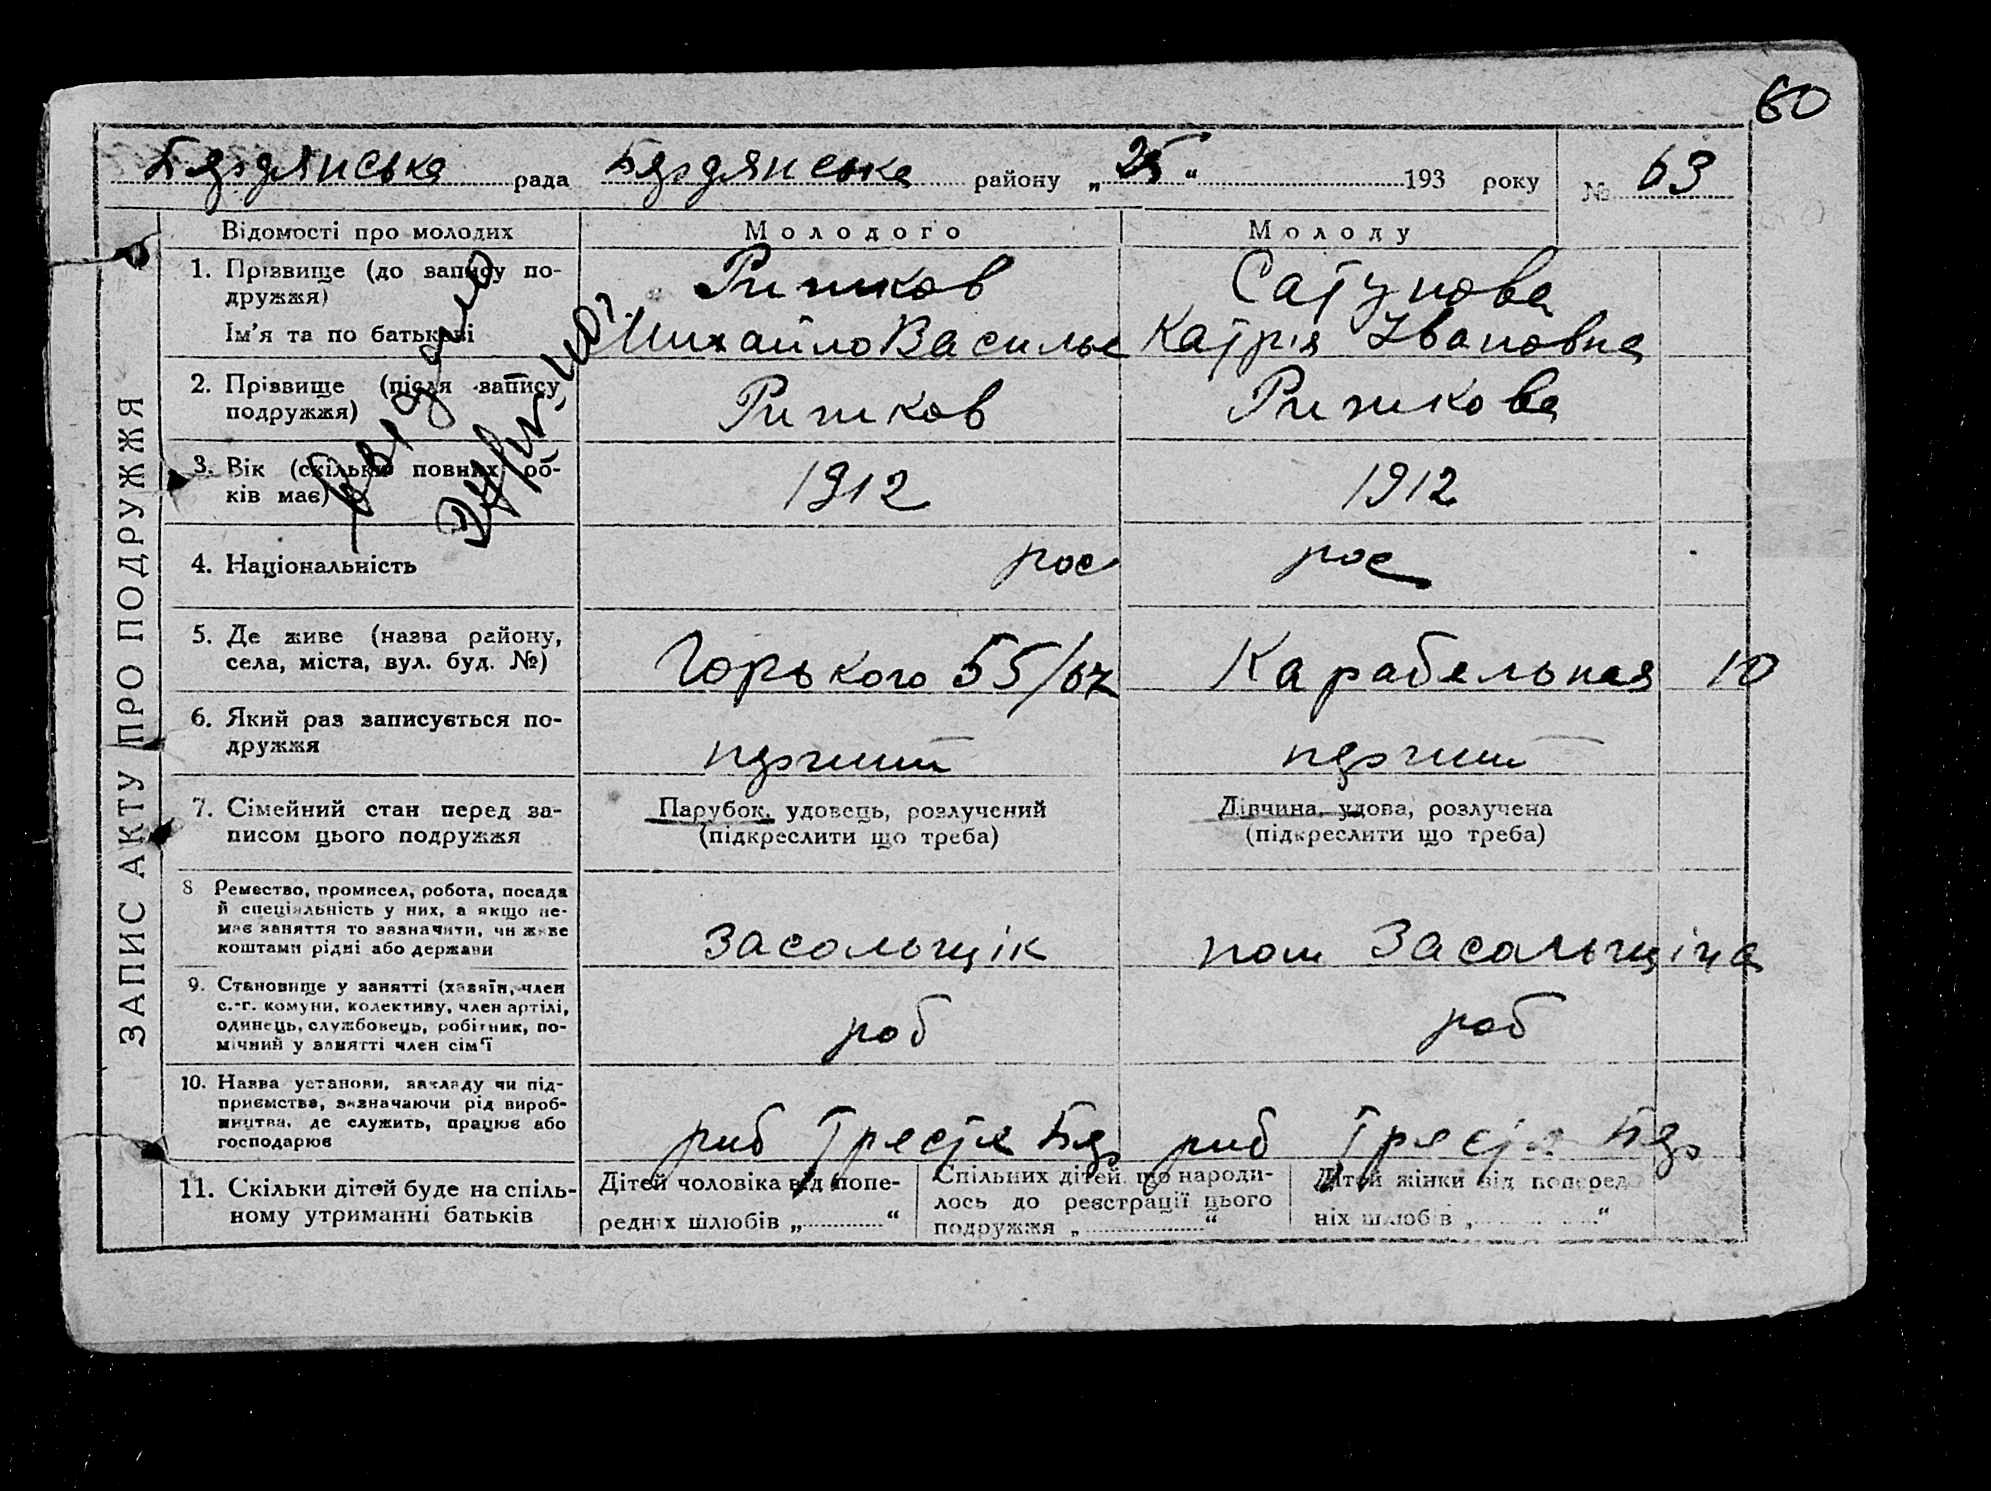 60
Бердянська рада Бердянська району „25“ 193 року № 63
ЗАПИС АКТУ ПРО ПОДРУЖЖЯ
Відомості про молодих Молодого Молоду
1. Прізвище (до запису по-
дружжя)
Рижков Сатунова
Ім'я та по батькові Михайло Василье Катрія Івановна
2. Прізвище (після запису
подружжя)
Рижков Рижкова
3. Вік (скільки повних ро-
ків має)
1912 1912
Видано
4. Національність рос рос
5. Де живе (назва району,
села, міста, вул. буд. №)
Горького 55/67 Карабельная 10
6. Який раз записується по-
дружжя
перший перший
7. Сімейний стан перед за-
писом цього подружжя
Парубок, удовець, розлучений
(підкреслити що треба)
Дівчина, удова, розлучена
(підкреслити що треба)
8 Ремество, промисел, робота, посада
й спеціяльність у них, а якщо не-
має заняття то зазначити, чи живе
коштами рідні або держави
засольщік пом Засольщіка
9. Становище у занятті (хазяїн, член
с.-г. комуни, колективу, член артілі,
одинець, службовець, робітник, по-
мічний у занятті член сім'ї
роб роб
10. Назва установи, закладу чи під-
приємства, зазначаючи рід вироб-
ництва, де служить, працює або
господарює
риб Треста Бер риб Треста Бер
11. Скільки дітей буде на спіль-
ному утриманні батьків
Дітей чоловіка від попе-
редніх шлюбів „ “
Спільних дітей, що народи-
лось до реєстрації цього
подружжя „ “
Дітей жінки від поперед
ніх шлюбів „ “